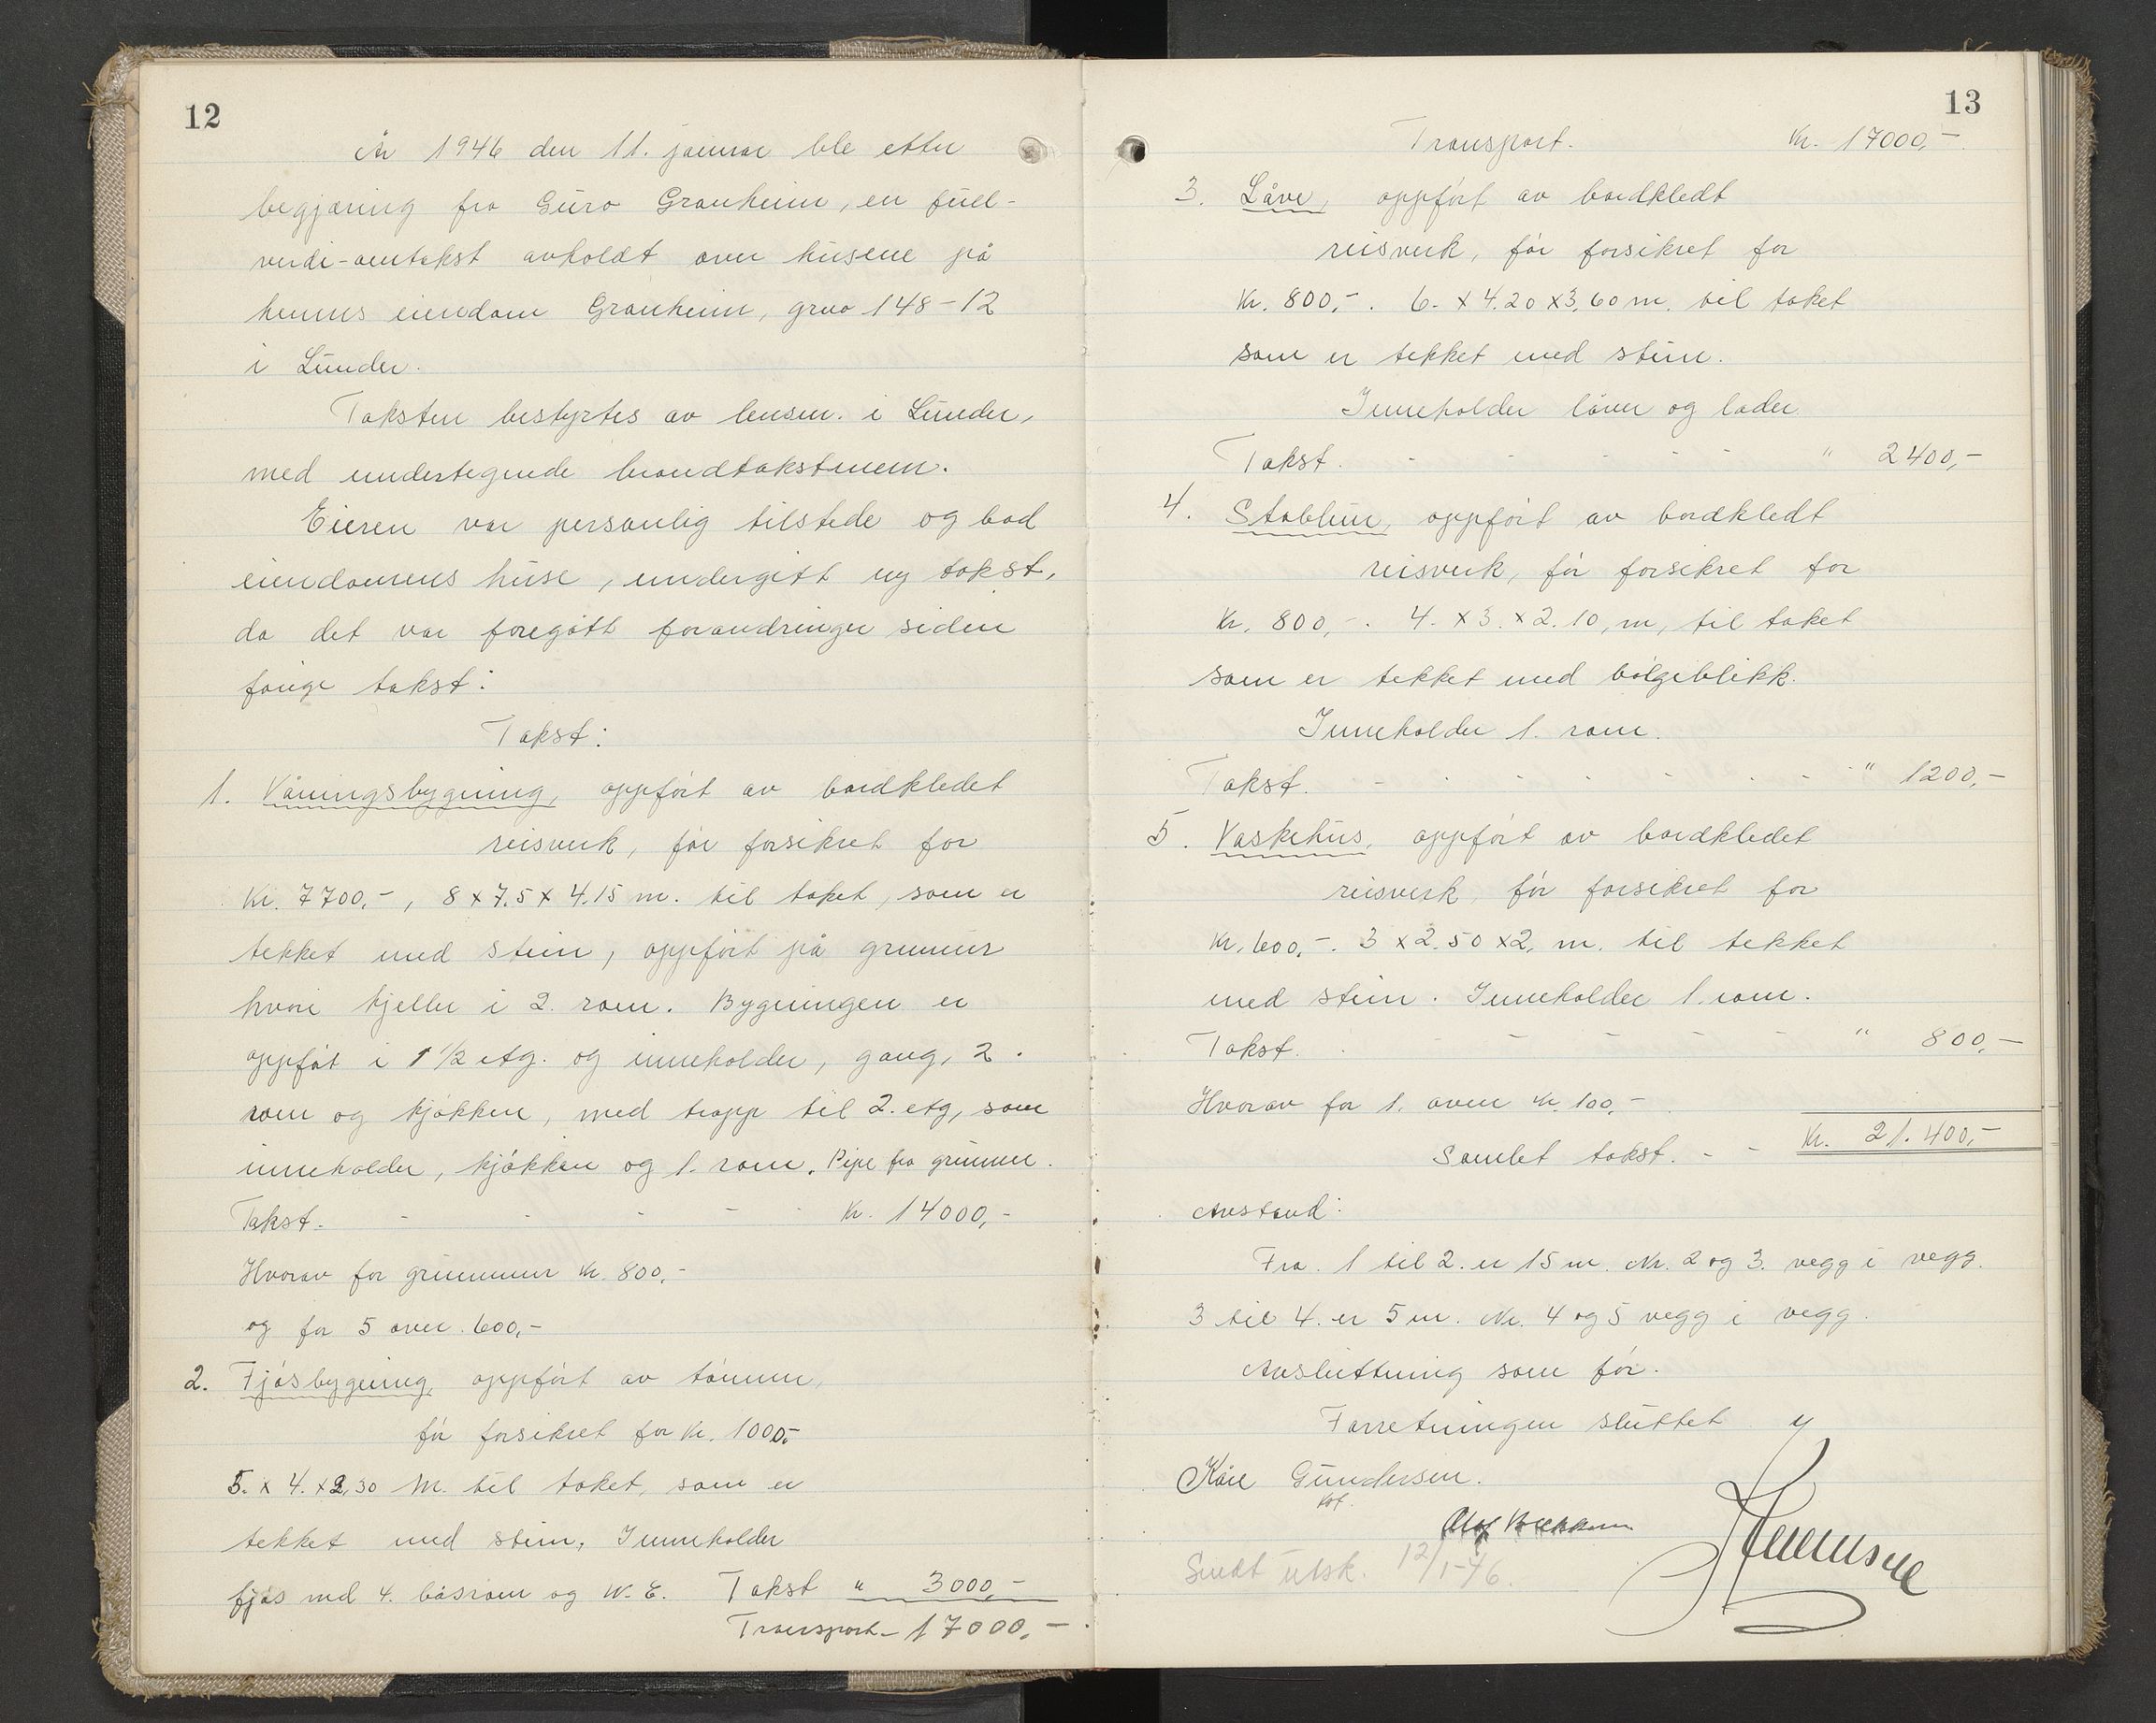 12
År 1946 den 11. januar ble etter
begjæring fra Guro Granheim, en full-
verdi-omtakst avholdt over husene på
hennes eiendom Granheim, gnr 148-12
i Lunder.
Taksten bestyrtes av lensm. i Lunder,
med undertegnede brandtakstmenn.
Eieren var personlig tilstede og bad
eiendommens huse, undergitt ny takst,
da det var foregått forandringer siden
forige takst:
Takst:
1. Våningsbygning, oppfört av bordkledet
reisverk, för forsikret for
Kr. 7700,-, 8 x 7.5 x 4.15 m. til taket, som er
tekket med stein, oppfört på grunnmur
hvori kjeller i 2. rom. Bygningen er
oppfört i 1 1/2 etg. og inneholder, gang, 2.
rom og kjökken, med trapp til 2. etg, som
inneholder, kjökken og 1. rom. Pipe fra grunnen.
Takst. - - - - - Kr. 14000,-
Hvorav for grunnmur kr. 800,-
og for 5 ovner. 600,-
2. Fjösbygning, oppfört av tömmer,
för forsikret for Kr. 1000,-
5. x 4. x 2,30 m. til taket, som er
tekket med stein. Inneholder
fjös med 4. båsrom og W. C. Takst " 3000,-
Transport - 17000,-
13
Transport. Kr. 17000,-
3. Låve, oppfört av bordkledt
reisverk, för forsikret for
Kr. 800,-. 6. x 4.20 x 3.60 m. til taket
som er tekket med stein.
Inneholder låver og lader.
Takst. - - - - - - " 2400,-
4. Stabbur, oppfört av bordkledt
reisverk, för forsikret for
Kr. 800,-. 4. x 3. x 2.10, m, til taket
som er tekket med bölgeblikk.
Inneholder 1. rom.
Takst. - - - - - - - " 1200,-
5. Vaskehus, oppfört av bordkledet
reisverk, för forsikret for
Kr. 600,-. 3 x 2.50 x 2. m. til tekket
med stein. Inneholder 1. rom.
Takst. - - - - - " 800,-
Hvorav for 1. oven kr. 100,-
Samlet takst. - - Kr. 21.400,-
Avstand:
Fra. 1 til 2. er 15 m. Nr. 2 og 3. vegg i vegg.
3 til 4. er 5 m. Nr. 4 og 5 vegg i vegg.
Avsluttning som för.
Forretningen sluttet
Kåre Gundersen.
Sendt utsk. 12/1-46.